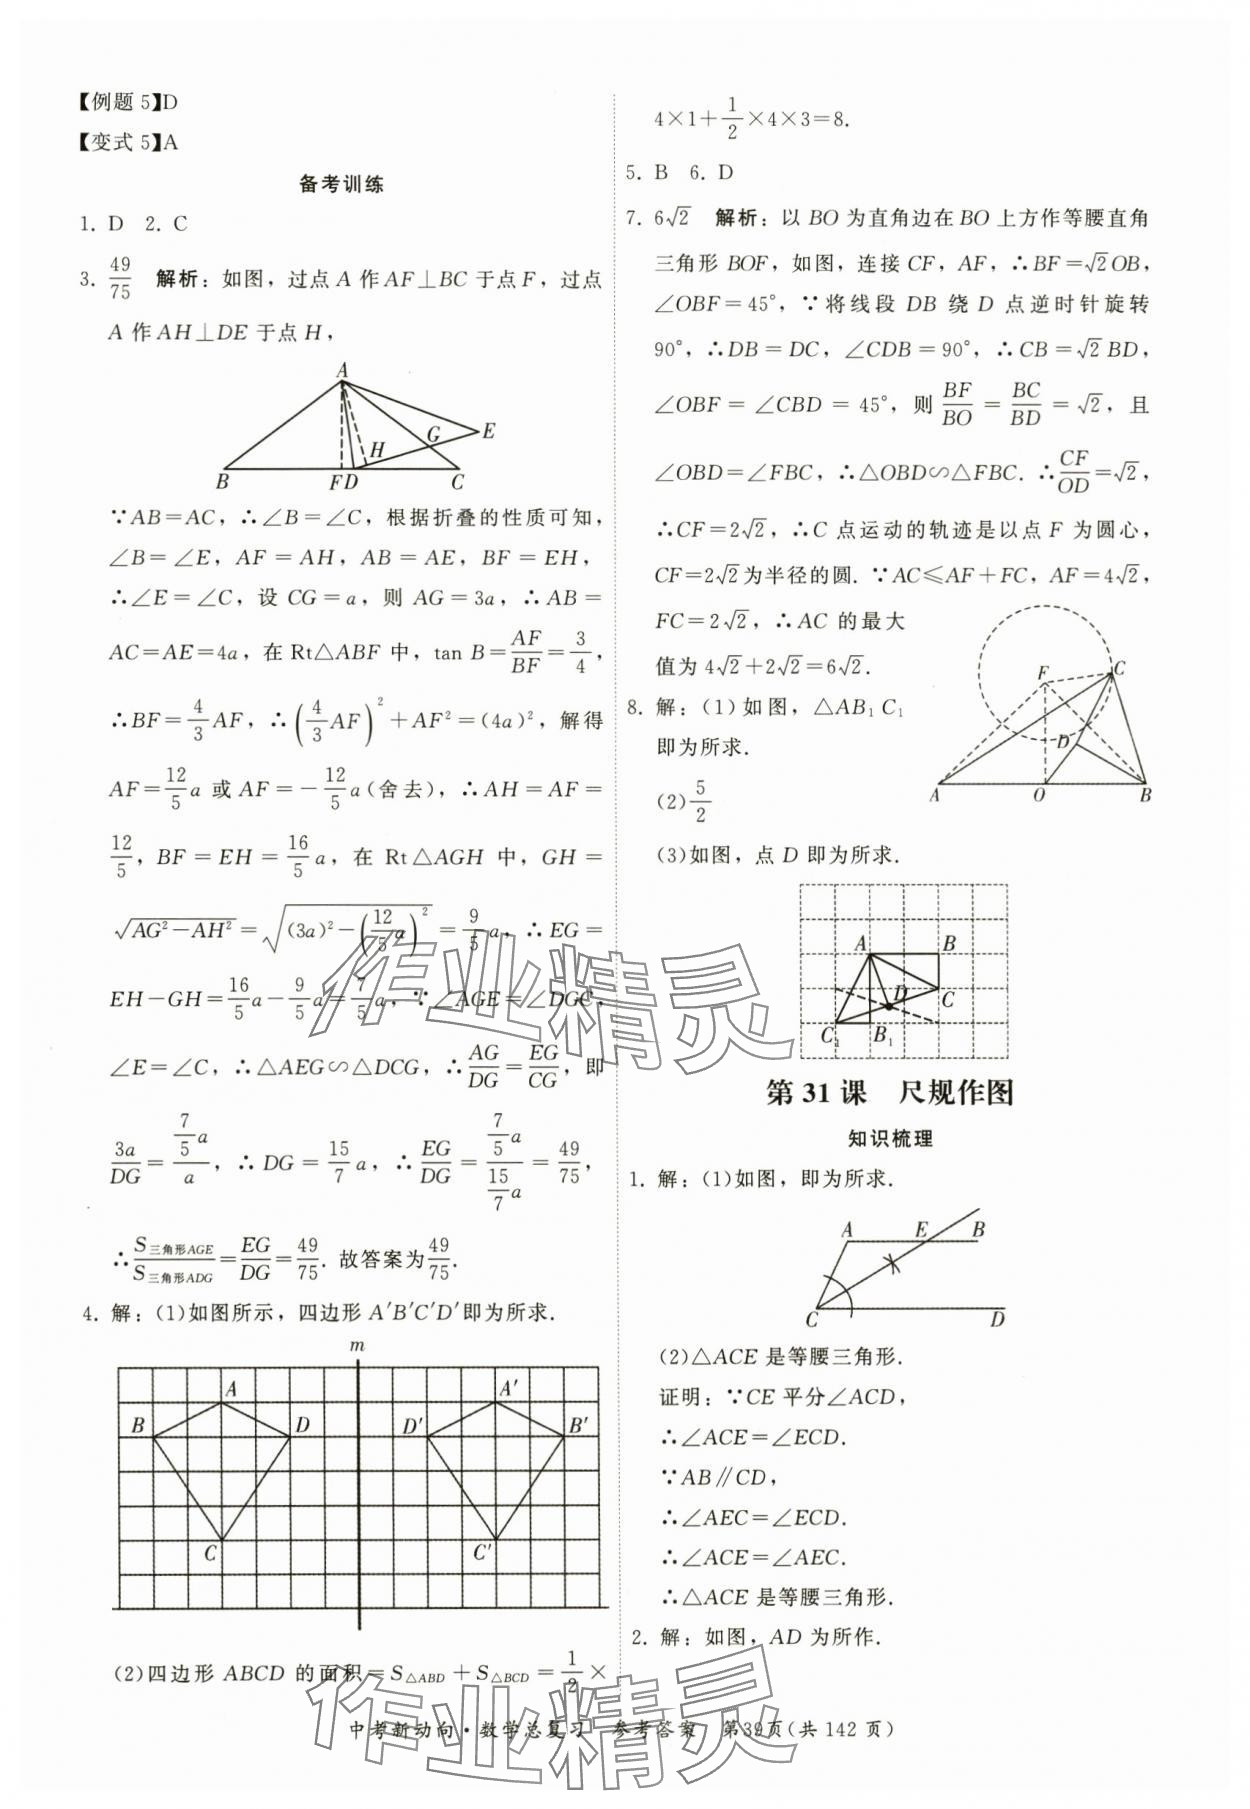 【例题 5】D
【变式 5】A
备考训练
1. D  2. C
3. 49/75  解析：如图，过点 A 作 AF⊥BC 于点 F，过点
A 作 AH⊥DE 于点 H，
A
G
E
H
B
F D
C
∵AB=AC，∴∠B=∠C，根据折叠的性质可知，
∠B=∠E，AF=AH，AB=AE，BF=EH，
∴∠E=∠C，设 CG=a，则 AG=3a，∴AB=
AC=AE=4a，在 Rt△ABF 中，tan B=AF/BF=3/4，
∴BF=4/3AF，∴(4/3AF)²+AF²=(4a)²，解得
AF=12/5a 或 AF=-12/5a(舍去)，∴AH=AF=
12/5，BF=EH=16/5a，在 Rt△AGH 中，GH=
√(AG²-AH²)=√((3a)²-(12/5a)²)=9/5a，∴EG=
EH-GH=16/5a-9/5a=7/5a，∵∠AGE=∠DGC，
∠E=∠C，∴△AEG∽△DCG，∴AG/DG=EG/CG，即
3a/DG=(7/5a)/a，∴DG=15/7a，∴EG/DG=(7/5a)/(15/7a)=49/75，
∴S三角形AGE/S三角形ADG=EG/DG=49/75. 故答案为49/75.
4. 解：(1)如图所示，四边形 A′B′C′D′即为所求.
m
A
A′
B
D
D′
B′
C
C′
(2)四边形 ABCD 的面积=S△ABD+S△BCD=1/2×
4×1+1/2×4×3=8.
5. B  6. D
7. 6√2  解析：以 BO 为直角边在 BO 上方作等腰直角
三角形 BOF，如图，连接 CF，AF，∴BF=√2OB，
∠OBF=45°，∵将线段 DB 绕 D 点逆时针旋转
90°，∴DB=DC，∠CDB=90°，∴CB=√2BD，
∠OBF=∠CBD=45°，则BF/BO=BC/BD=√2，且
∠OBD=∠FBC，∴△OBD∽△FBC. ∴CF/OD=√2，
∴CF=2√2，∴C 点运动的轨迹是以点 F 为圆心，
CF=2√2为半径的圆. ∵AC≤AF+FC，AF=4√2，
FC=2√2，∴AC 的最大
值为 4√2+2√2=6√2.
F
C
D
A
O
B
8. 解：(1)如图，△AB₁C₁
即为所求.
(2)5/2
(3)如图，点 D 即为所求.
A
B
D
C
C₁
B₁
第 31 课 尺规作图
知识梳理
1. 解：(1)如图，即为所求.
A
E
B
C
D
(2)△ACE 是等腰三角形.
证明：∵CE 平分∠ACD，
∴∠ACE=∠ECD.
∵AB∥CD，
∴∠AEC=∠ECD.
∴∠ACE=∠AEC.
∴△ACE 是等腰三角形.
2. 解：如图，AD 为所作.
作业精灵
作业精灵
中考新动向·数学总复习 参考答案 第39页(共 142 页)